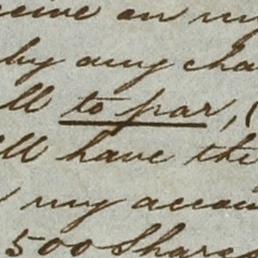 ceive on my
by any cha
ll to par, (
ll have the
my accou
500 Shares